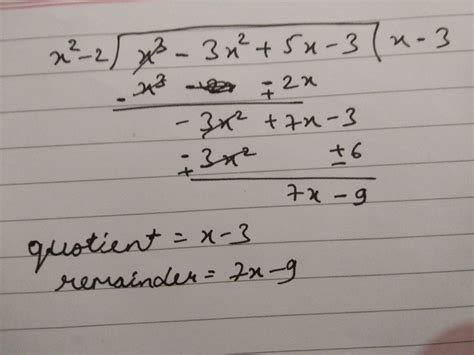 x² - 2 ) x³ - 3x² + 5x - 3 ( x - 3
x³ - 2x
- +
- 3x² + 7x - 3
- 3x² + 6
+ -
7x - 9
quotient = x - 3
remainder = 7x - 9